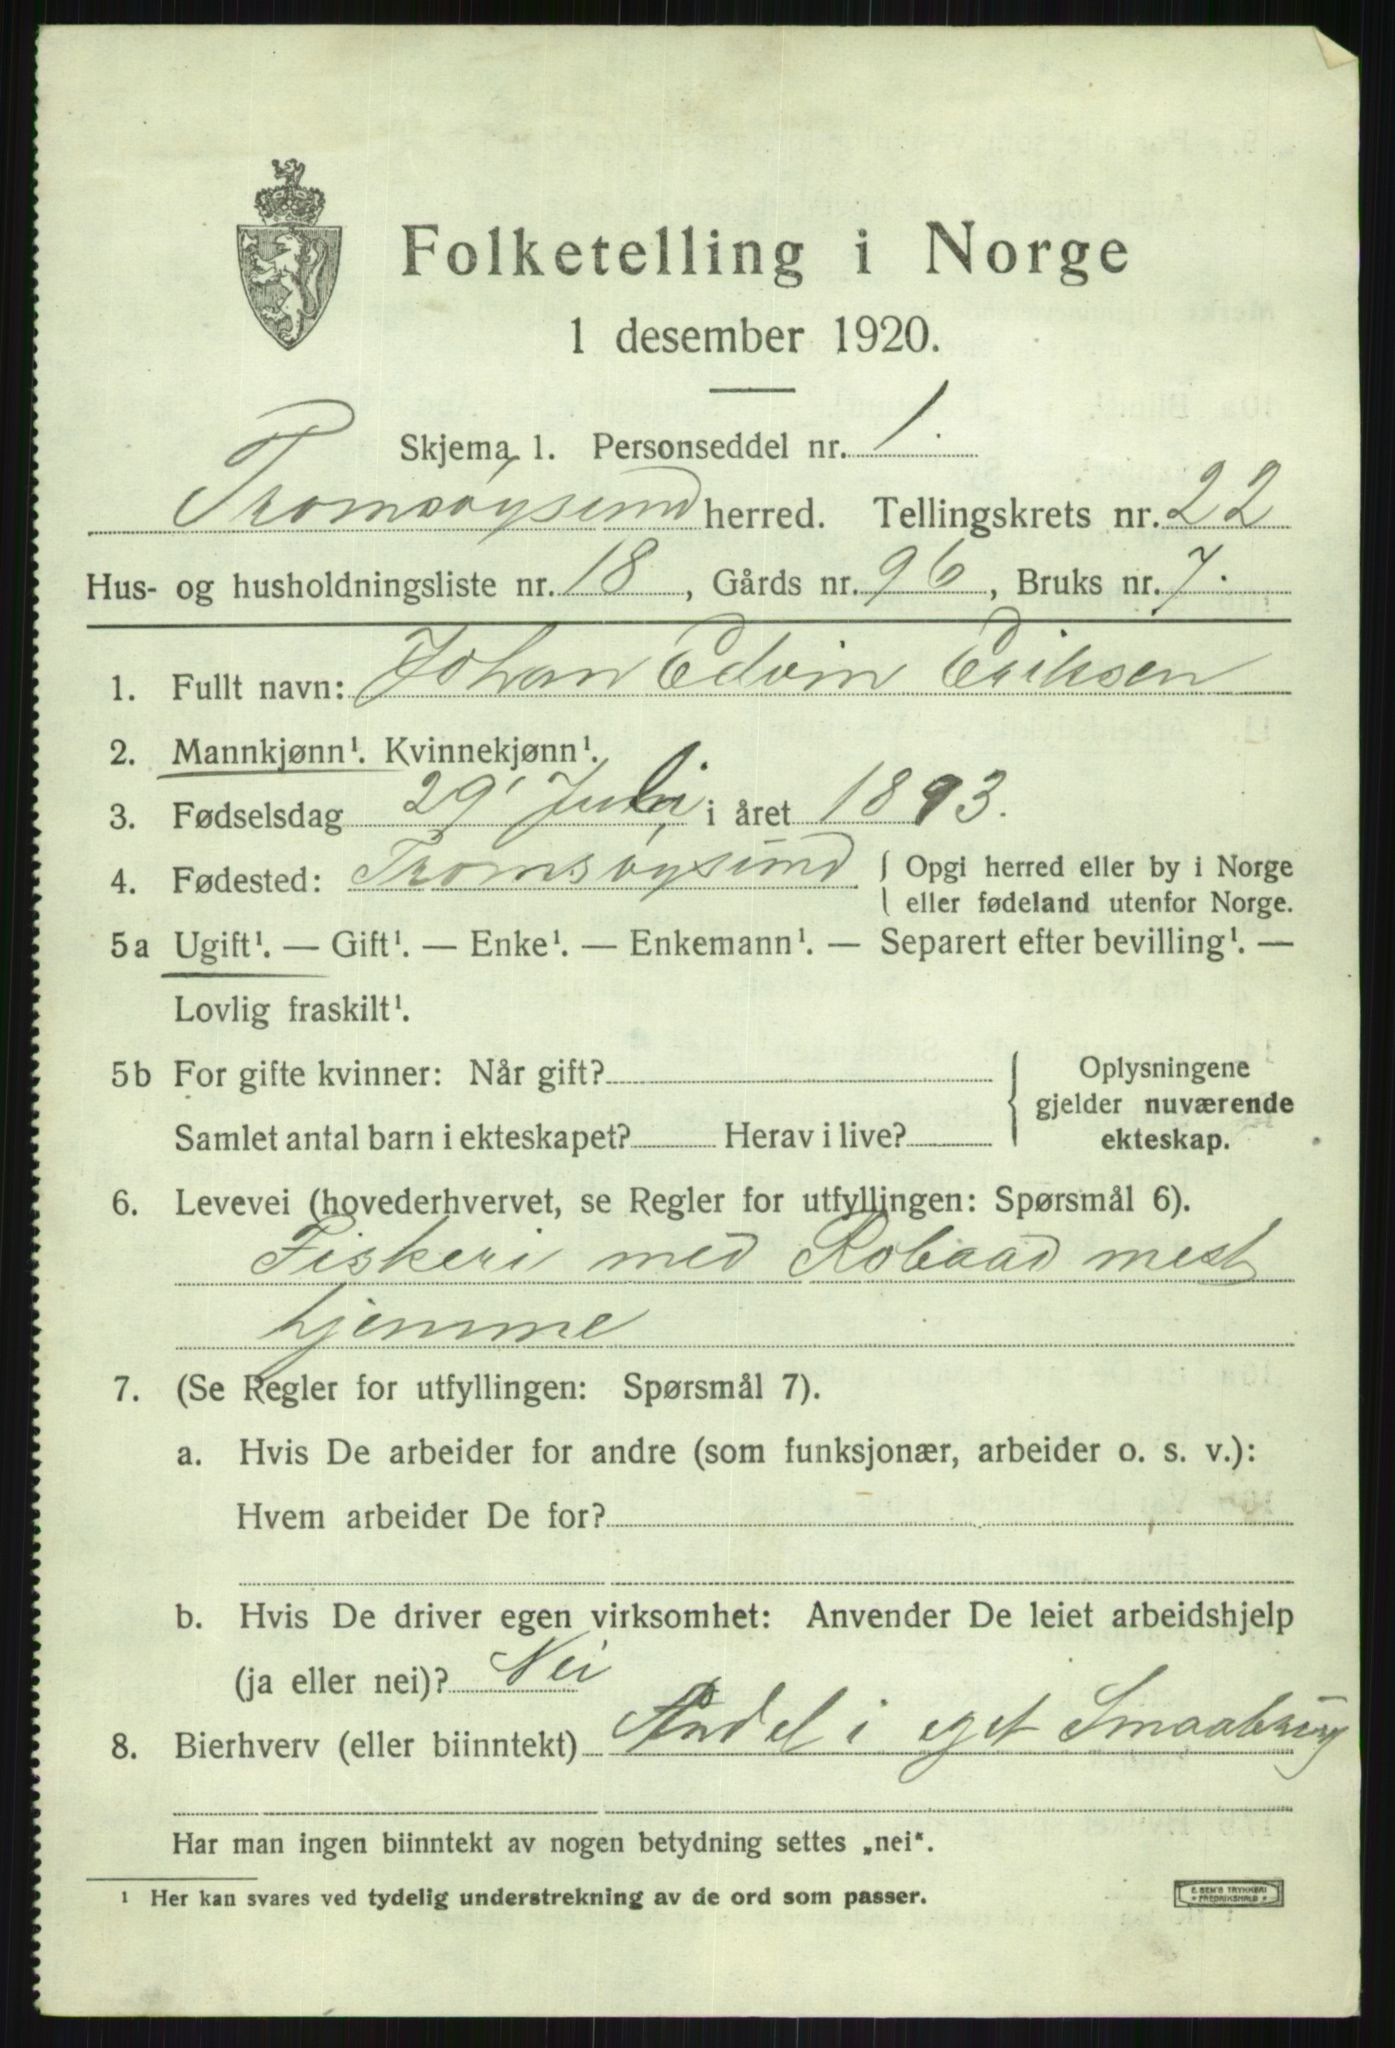 Folketelling i Norge
1 desember 1920.
Skjema 1. Personseddel nr. 1.
Tromsøysund herred. Tellingskrets nr. 22
Hus- og husholdningsliste nr. 18, Gårds nr. 96, Bruks nr. 7.
1. Fullt navn: Johan Edvin Eriksen
2. Mannkjønn¹. Kvinnekjønn¹.
3. Fødselsdag 29' Juli i året 1893.
4. Fødested: Tromsøysund { Opgi herred eller by i Norge
eller fødeland utenfor Norge.
5a Ugift¹. — Gift¹. — Enke¹. — Enkemann¹. — Separert efter bevilling¹. —
Lovlig fraskilt¹.
5b For gifte kvinner: Når gift?
Samlet antal barn i ekteskapet? Herav i live?
{ Oplysningene
gjelder nuværende
ekteskap.
6. Levevei (hovederhvervet, se Regler for utfyllingen: Spørsmål 6).
Fiskeri med Robaad mest
hjemme
7. (Se Regler for utfyllingen: Spørsmål 7).
a. Hvis De arbeider for andre (som funksjonær, arbeider o. s. v.):
Hvem arbeider De for?
b. Hvis De driver egen virksomhet: Anvender De leiet arbeidshjelp
(ja eller nei)? Nei
8. Bierhverv (eller biinntekt) Andel i eget Smaabrug
Har man ingen biinntekt av nogen betydning settes „nei“.
¹ Her kan svares ved tydelig understrekning av de ord som passer.
E. SEM'S TRYKKERI
* FREDRIKSHALD *